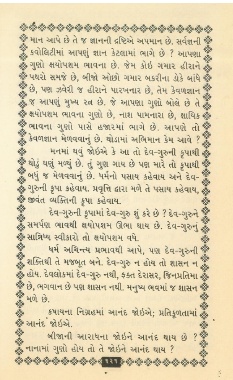 માન આપે છે તે જ જ્ઞાનની દ્રષ્ટિએ અપમાન છે. સર્વજ્ઞની
ક્વોલિટીમાં આપણું જ્ઞાન કેટલામાં ભાગે છે ? આપણા
ગુણો ક્ષયોપશમ ભાવના છે. જેમ કોઇ ગમાર હીરાને
પથરો સમજે છે, બીજો ઓછો ગમાર બકરીના ડોકે બાંધે
છે, પણ ઝવેરી જ હીરાને પારખનાર છે, તેમ કેવળજ્ઞાન
જ આપણું મુખ્ય રત્ન છે. જે આપણા ગુણો બોલે છે તે
ક્ષયોપશમ ભાવના ગુણો છે, નાશ પામનારા છે, ક્ષાયિક
ભાવના ગુણો પાસે હજારમાં ભાગે છે. આપણે તો
કેવળજ્ઞાન મેળવવાનું છે. થોડામાં અભિમાન કેમ આવે ?
મનમાં થવું જોઇએ કે આ તો દેવ-ગુરુની કૃપાથી
થોડું ઘણું મળ્યું છે. તું ગુણ ગાય છે પણ મારે તો કૃપાથી
બધું જ મેળવવાનું છે. ધર્મનો પસાય કહેવાય અને દેવ-
ગુરુની કૃપા કહેવાય. પ્રવૃત્તિ દ્વારા મળે તે પસાય કહેવાય,
જીવંત વ્યક્તિની કૃપા કહેવાય.
દેવ-ગુરુની કૃપામાં દેવ-ગુરુ શું કરે છે ? દેવ-ગુરુને
સમર્પણ ભાવથી ક્ષયોપશમ ઊભા થાય છે. દેવ-ગુરુનું
સાન્નિધ્ય સ્વીકારો તો ક્ષયોપશમ વધે.
ધર્મ અચિન્ત્ય પ્રભાવથી આપે, પણ દેવ-ગુરુની
શક્તિથી તે મજબૂત બને. દેવ-ગુરુ ન હોય તો શાસન ન
હોય. દેવલોકમાં દેવ-ગુરુ નથી, ફક્ત દેરાસર, જિનપ્રતિમા
છે, ભગવાન છે પણ શાસન નથી. મનુષ્ય ભવમાં જ શાસન
મળે છે.
કષાયના નિગ્રહમાં આનંદ જોઇએ; પ્રતિકૂળતામાં
આનંદ જોઇએ.
બીજાની આરાધના જોઇને આનંદ થાય છે ?
નાનામાં ગુણો હોય તો તે જોઇને આનંદ થાય ?